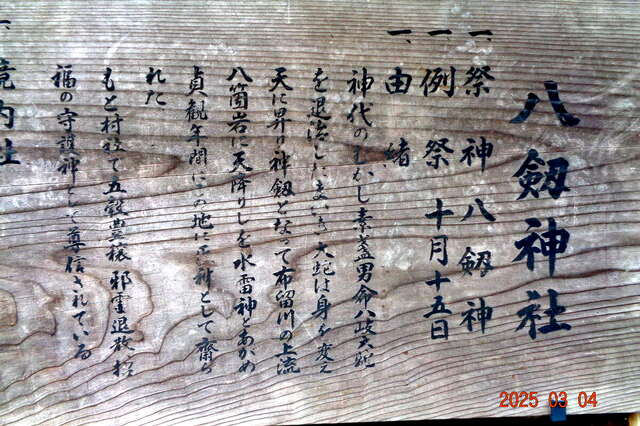 八劔神社
一、祭神 八劔神
一、例祭 十月十五日
一、由緒
神代のむかし素盞男命八岐大蛇
を退治したまいき大蛇は身を変え
天に昇り神劔となって布留川の上流
八箇岩に天降りしを水雷神とあがめ
貞観年間にこの地に 神として齋ら
れた
もと村社で五穀豊穣 邪霊退散 招
福の守護神として尊信されている
一、境内社
2025 03 04